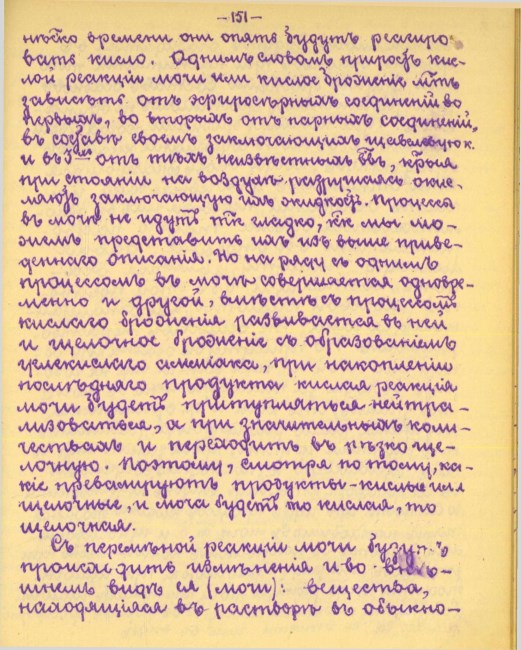 -151-
нѣско времени они опять будутъ реагиро-
вать кисло. Однимъ словомъ приростъ кис-
лой реакціи мочи или кислое броженіе м.тъ
зависѣть отъ эфиросѣрныхъ соединеній во
первыхъ, во вторыхъ отъ парныхъ соединеній,
въ составѣ своемъ заключающихъ щавелевую к.
и въ 3хъ отъ тѣхъ неизвѣстныхъ , к'рыя
при стояніи на воздухѣ разрушаясь окис-
ляютъ заключающую ихъ жидкость. Процессы
въ мочѣ не идутъ т'къ гладко, к'къ мы мо-
жемъ представить ихъ изъ выше приве-
деннаго описанія. Но на ряду съ однимъ
процессомъ въ мочѣ совершается одновре-
менно и другой, вмѣстѣ съ процессомъ
кислаго броженія развивается въ ней
и щелочное броженіе съ образованіемъ
углекислаго амміака, при накопленіи
послѣдняго продукта кислая реакція
мочи будетъ притупляться нейтра-
лизоваться, а при значительныхъ коли-
чествахъ и переходить въ рѣзко ще-
лочную. Поэтому, смотря по тому, ка-
кіе превалируютъ продукты-кислые или
щелочные, и моча будетъ то кислая, то
щелочная.
Съ перемѣной реакціи мочи будутъ
происходить измѣненія и во внѣ-
шнемъ видѣ ея (мочи): вещества,
находящіяся въ растворѣ въ обыкно-